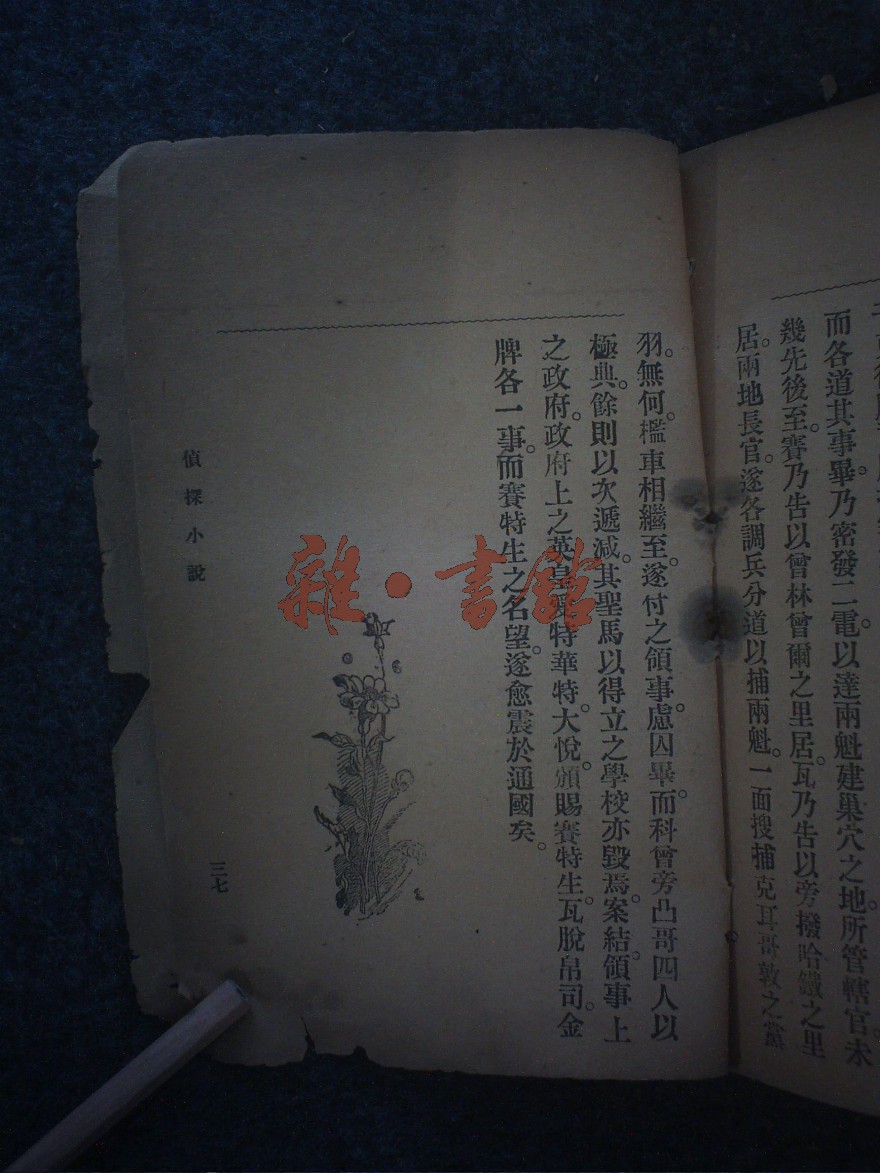 而各道其事畢。乃密發二電。以達兩魁建巢穴之地。所管轄官。未
幾先後至。賽乃告以曾林曾爾之里居。瓦乃告以旁撥哈鐵之里
居。兩地長官。遂各調兵分道以捕兩魁。一面搜捕克耳哥敦之黨
羽。無何。檻車相繼至。遂付之領事。慮囚畢。而科曾旁凸哥四人以
極典。餘則以次遞减。其聖馬以得立之學校亦毀焉。案結。領事上
之政府。政府上之英皇。特華特大悅。頒賜賽特生。瓦脫帛司。金
牌各一事。而賽特生之名望。遂愈震於通國矣。
偵探小說
三七
雜·書館